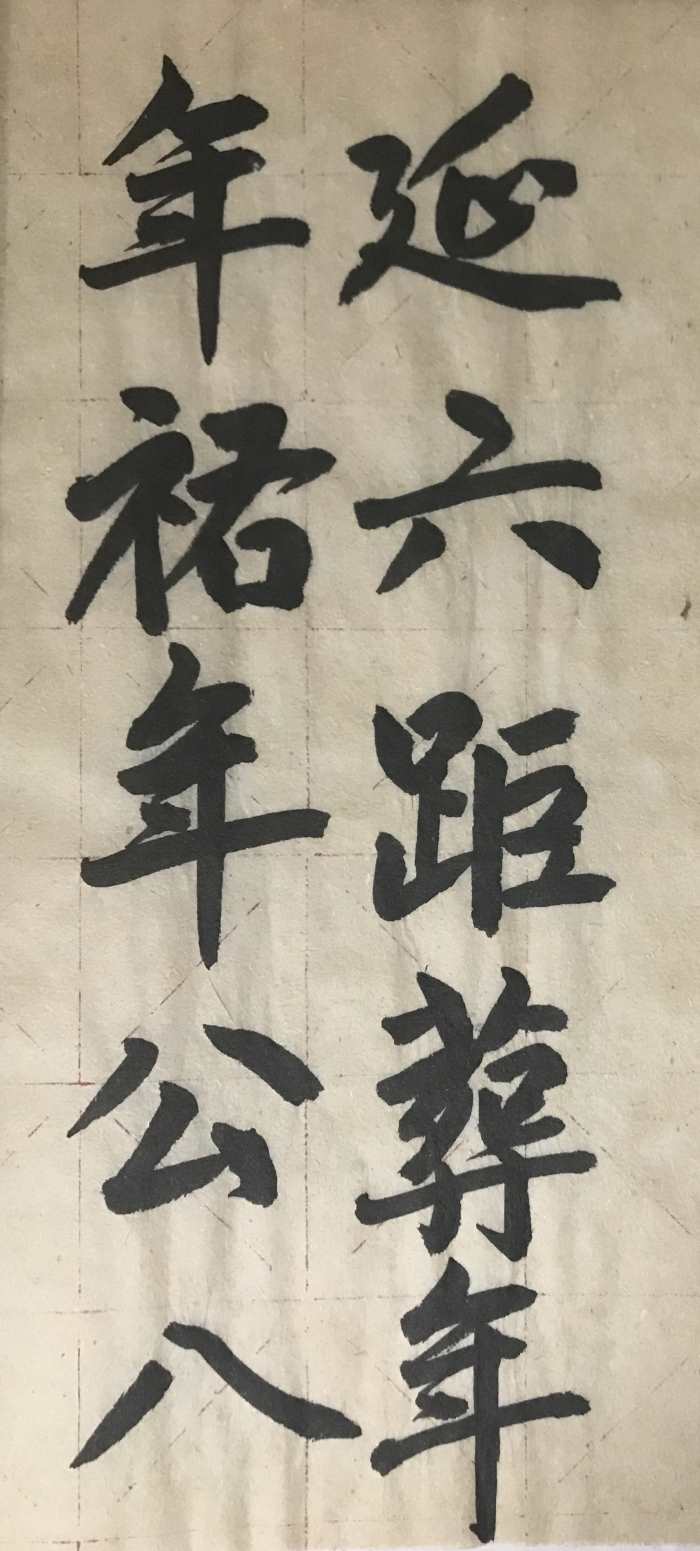 延六距葬年
年祐年公八